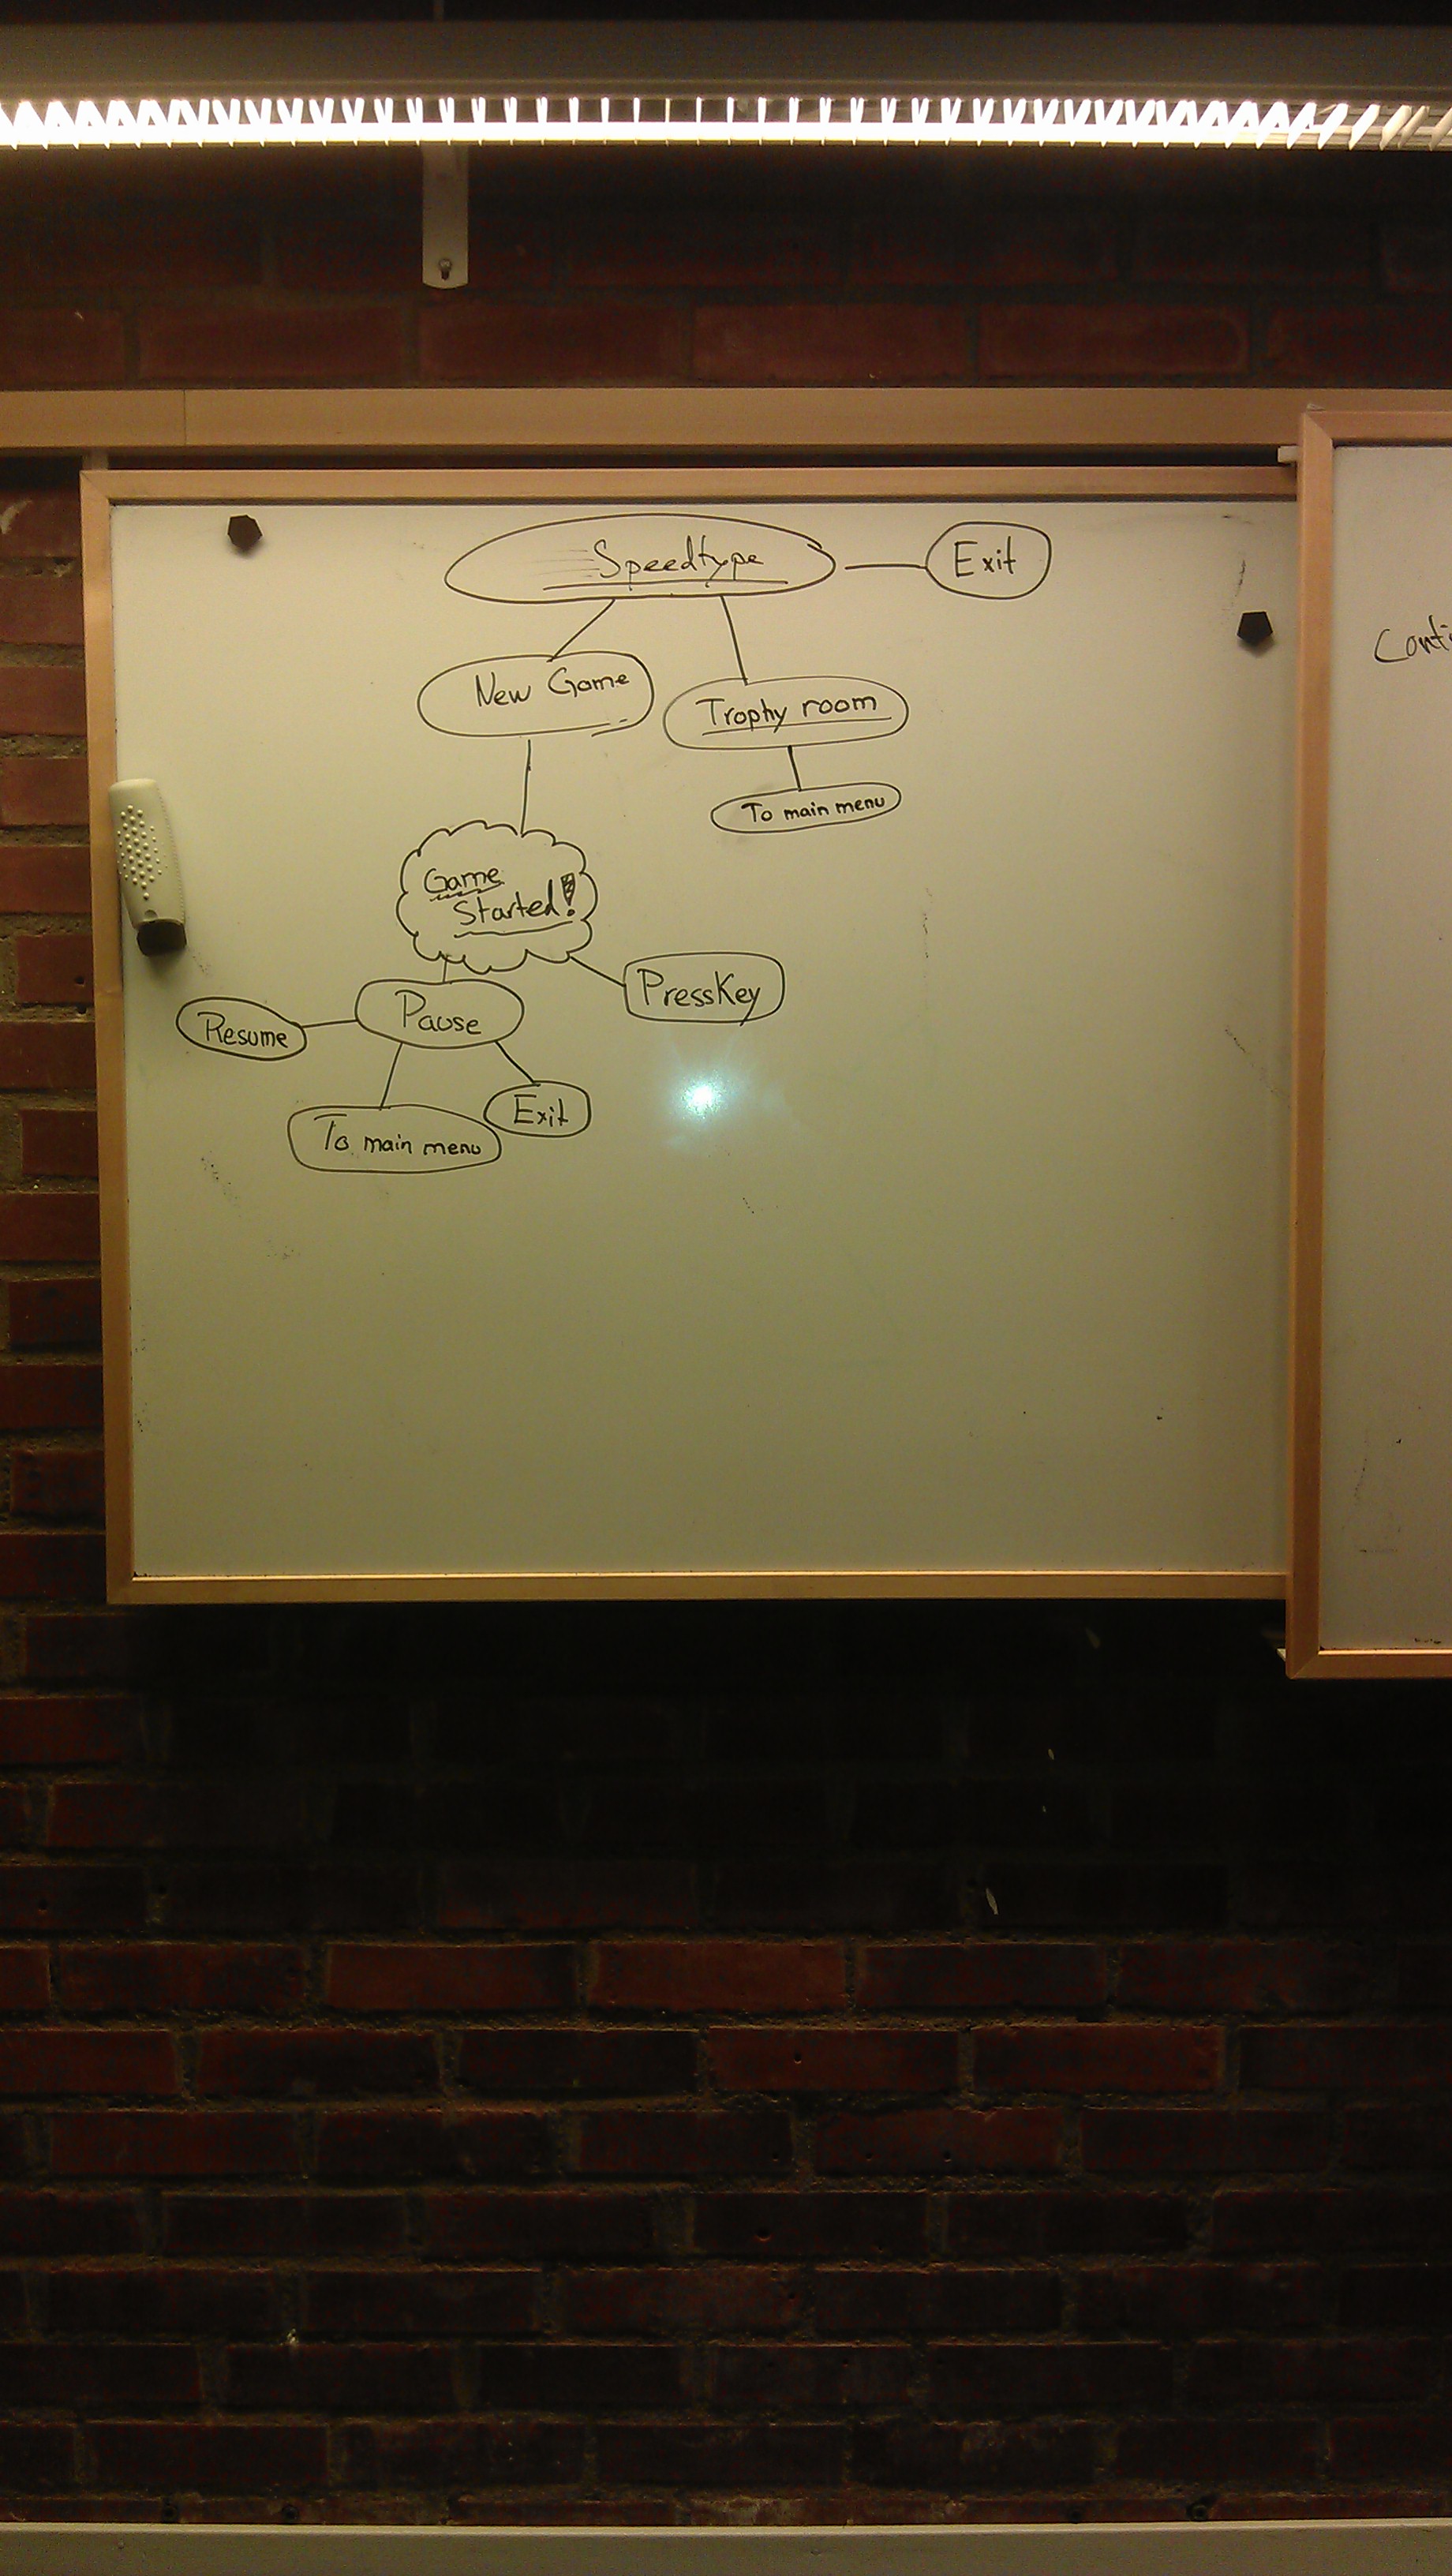 Speedtype
Exit
New Game
Trophy room
To main menu
Game
Started!
PressKey
Pause
Resume
Exit
To main menu